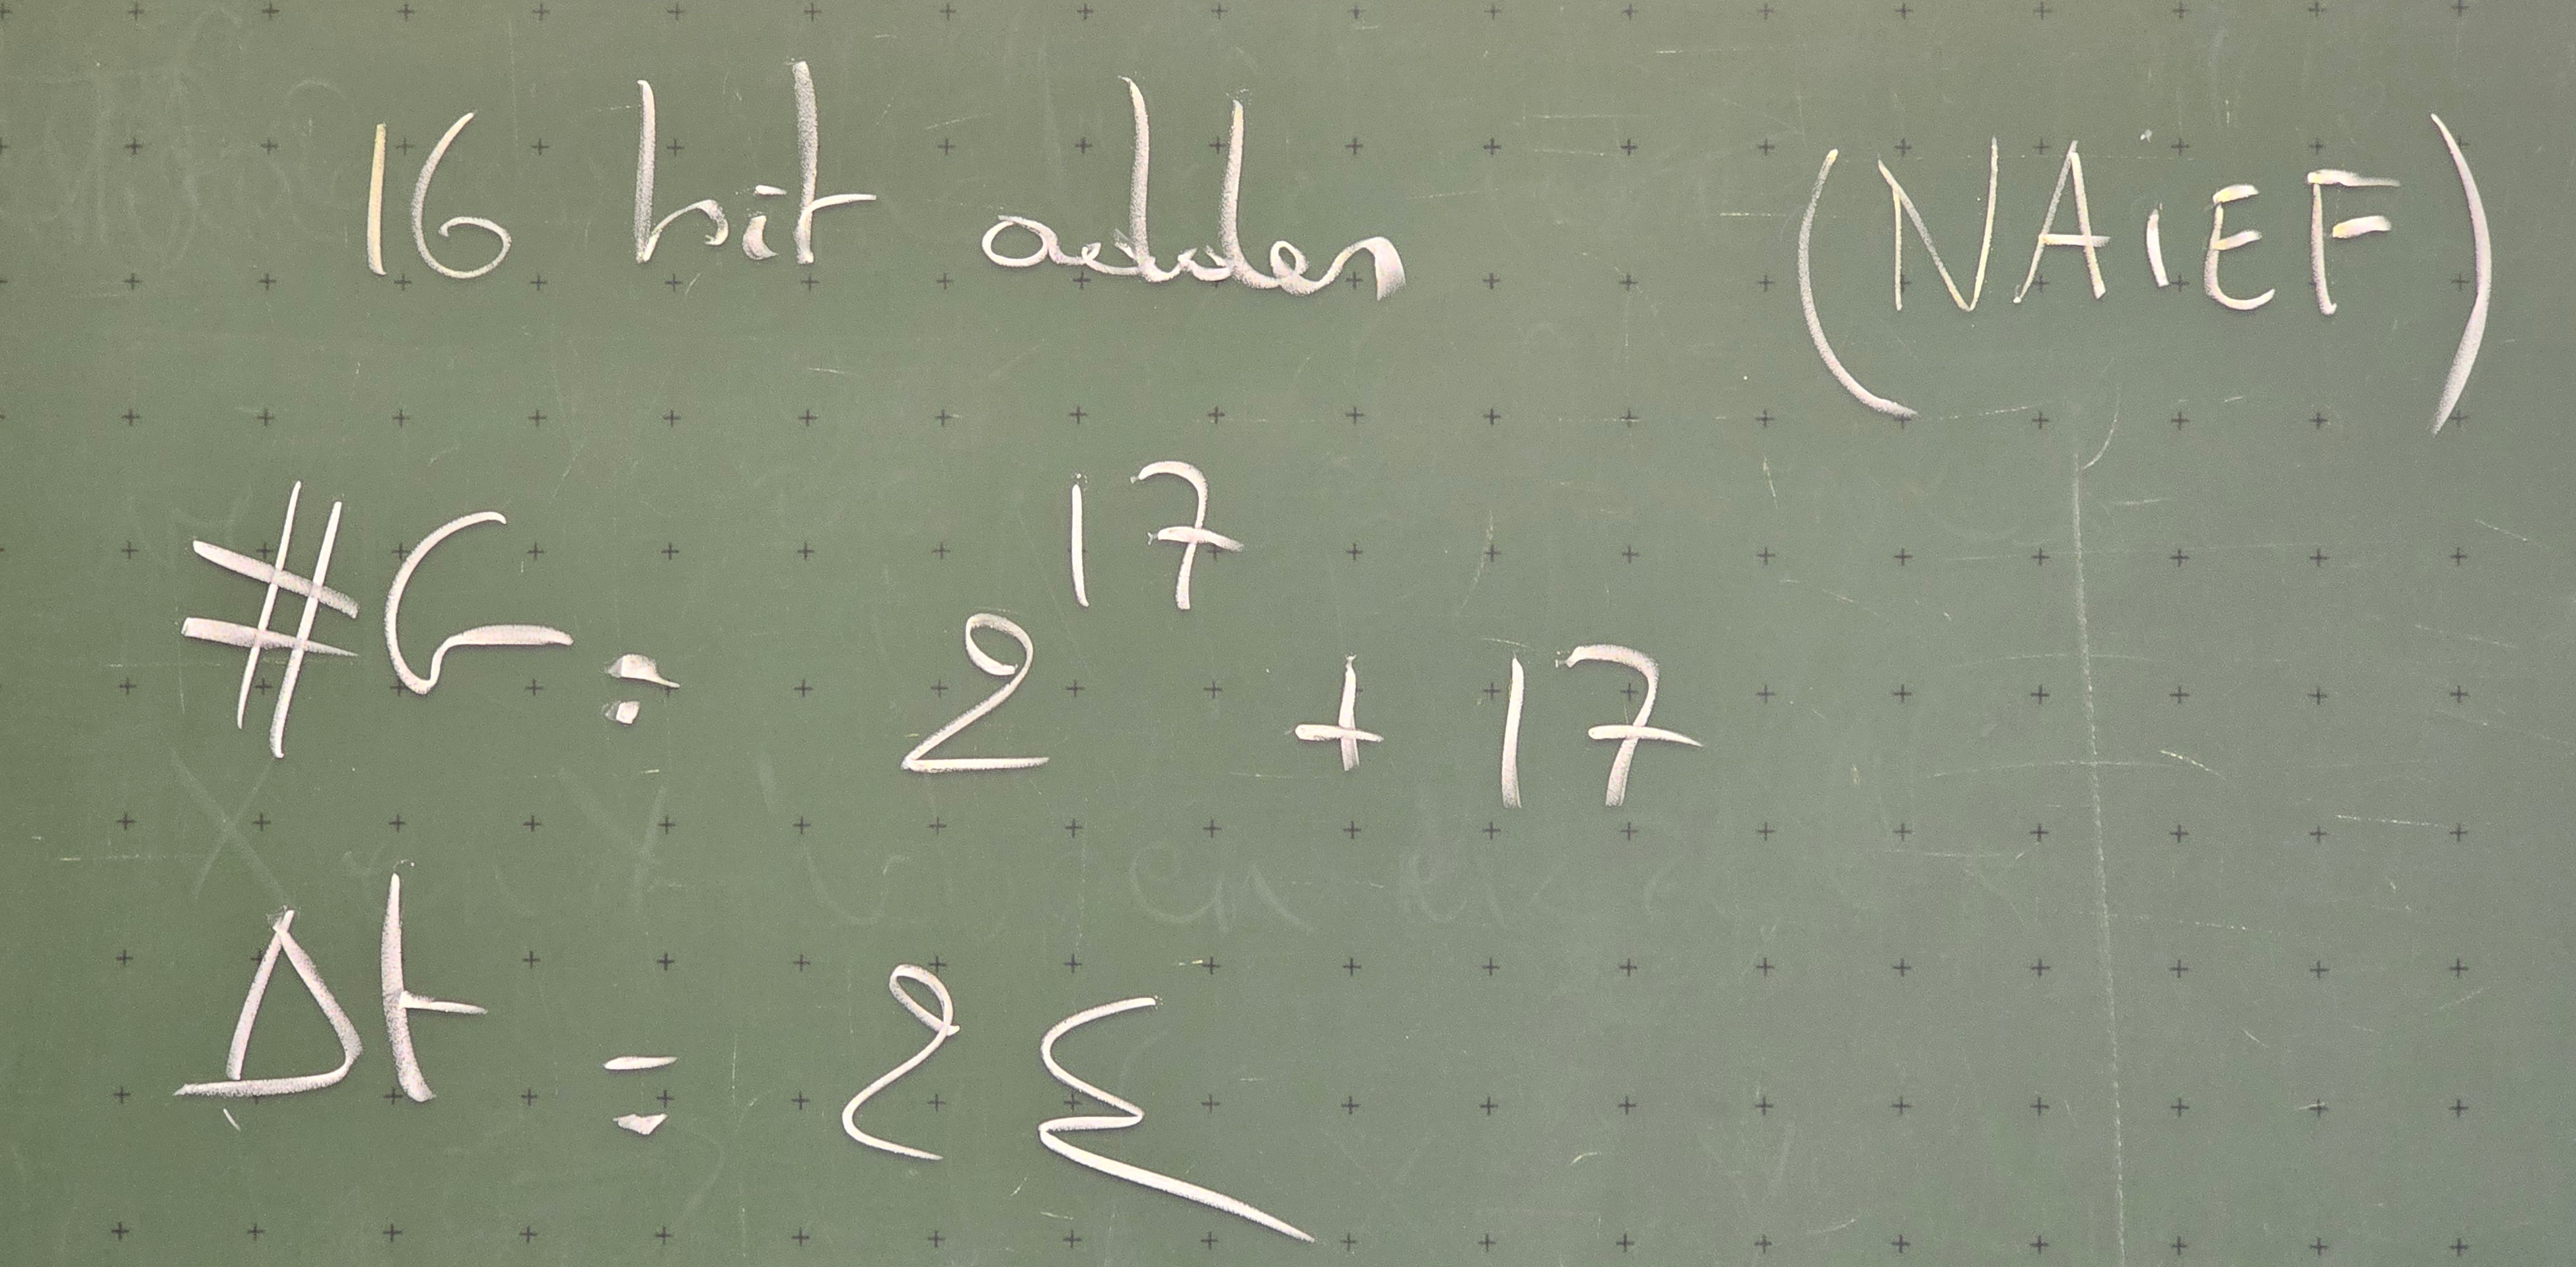 16 bit adder (NAiEF)
#G = 2^17 + 17
Δt = 2ε